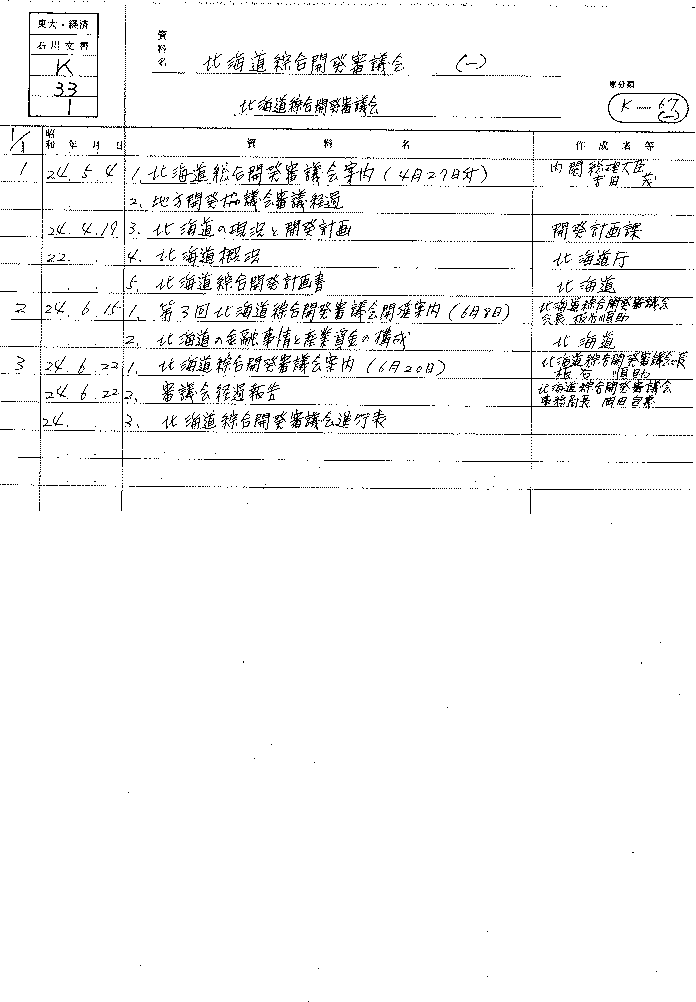 東大・経済
石川文書
K
33
1
資料名
北海道綜合開発審議会 (一)
北海道綜合開発審議会
原分類
K—67
(一)
1/1 昭和 年 月 日 資 料 名 作成者等
1 24. 5. 4 1. 北海道総合開発審議会案内(4月27日付) 内閣総理大臣
吉田 茂
2. 地方開発協議会審議経過
24. 4. 19 3. 北海道の現況と開発計画 開発計画課
22. 4. 北海道概況 北海道庁
5. 北海道綜合開発計画書 北海道
2 24. 6. 15 1. 第3回北海道綜合開発審議会開催案内(6月8日) 北海道綜合開発審議会
会長 板谷順助
2. 北海道の金融事情と産業資金の構成 北海道
3 24. 6. 22 1. 北海道綜合開発審議会案内(6月20日) 北海道綜合開発審議会長
板谷 順助
24. 6. 22 2. 審議会経過報告 北海道綜合開発審議会
事務局長 岡田
24. 3. 北海道綜合開発審議会進行表